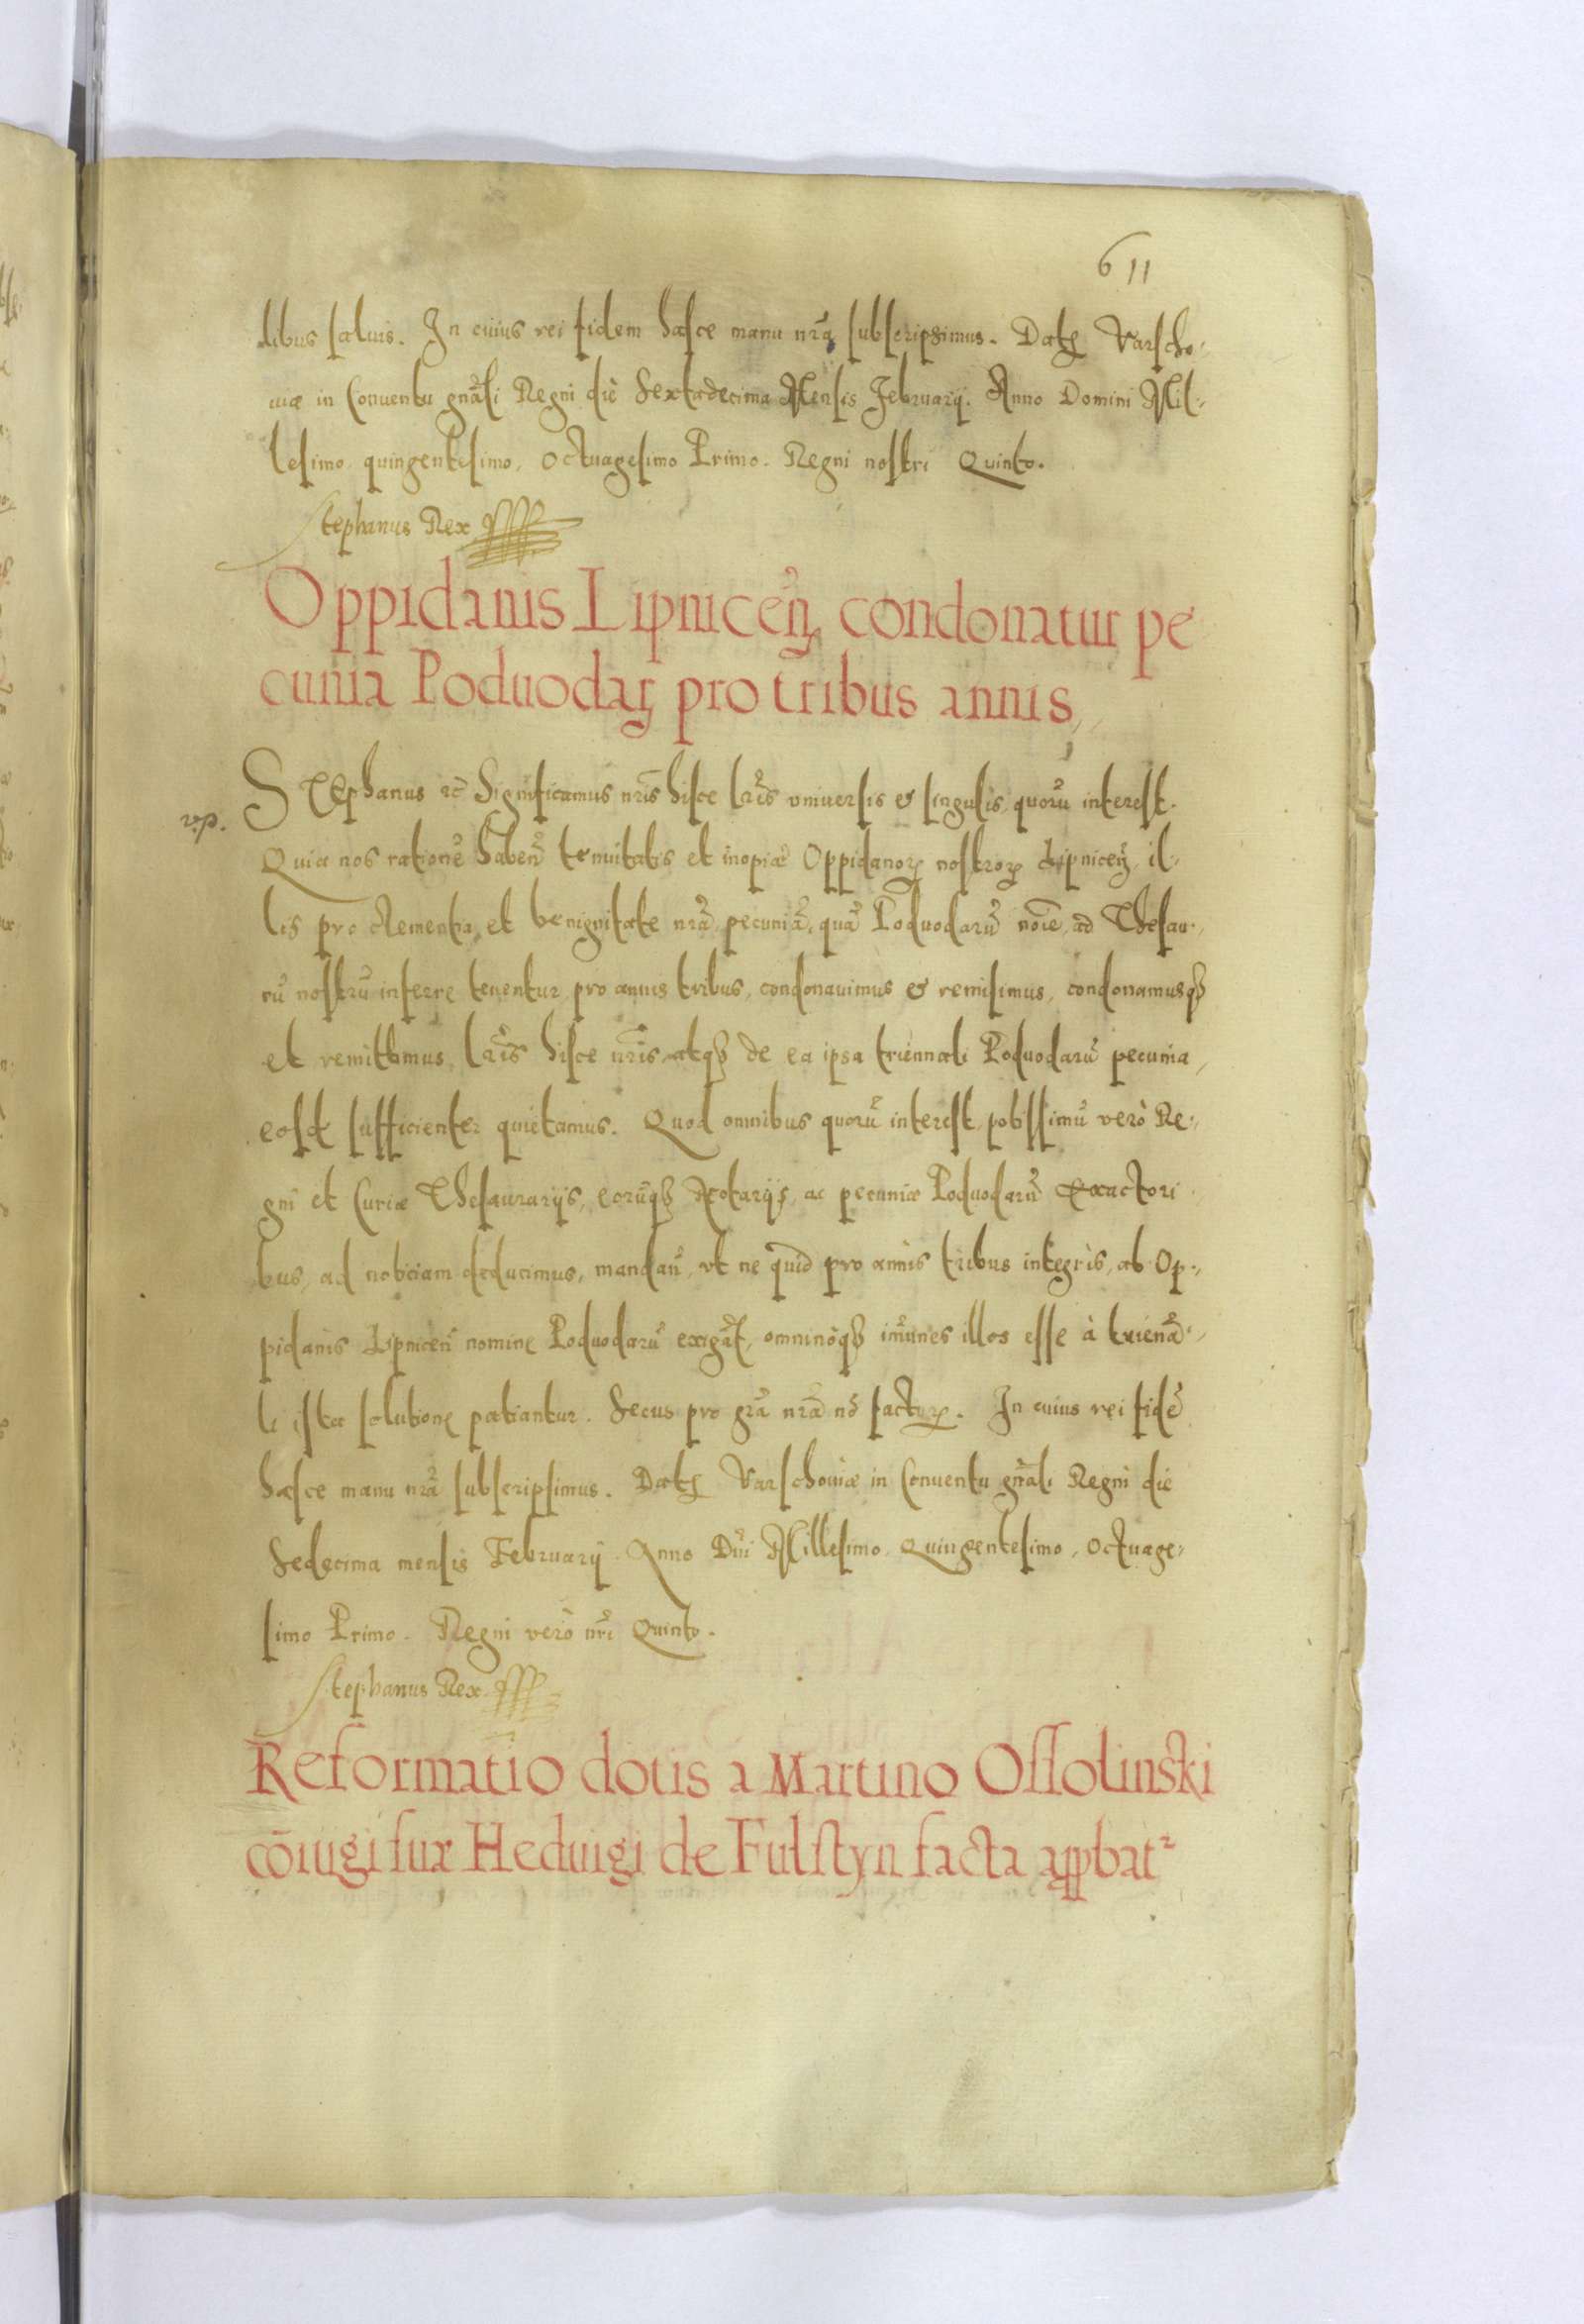 611
libus saluis. In cuius rei fidem hasce manu nrã subscripsimus. Datę Varscho-
uiæ in Conuentu gnãli Regni die Sextadecima Mensis Februarij. Anno Domini Mil-
lesimo, quingentesimo, Octuagesimo Primo. Regni nostri Quinto.
Stephanus Rex
Oppidanis Lipniceñ condonatur pe
cunia Poduodarꝫ pro tribus annis
STEphanus ec̃ Significamus nr̃is hisce lr̃is vniuersis & singulis quorũ interest.
Quia nos rationẽ habeñ tenuitatis et inopiæ Oppidanorꝫ nostrorꝫ Lipniceñ, il-
lis pro clementia, et benignitate nrã, pecuniã, quã Poduodarũ noĩe, ad Thesau-
rũ nostrũ inferre tenentur, pro annis tribus, condonauimus & remisimus, condonamusqꝫ
et remittimus, lr̃is hisce nr̃is, atqꝫ de ea ipsa triennali Poduodarũ pecunia,
eosdẽ sufficienter quietamus. Quod omnibus quorũ interest, potissimũ verò Re-
gni et Curiæ Thesaurarijs, eorũqꝫ Notarijs, ac pecuniæ Poduodarũ Exactori
bus, ad notitiam deducimus, mandañ, vt ne quid pro annis tribus integris, ab Op-
pidanis Lipniceñ nomine Poduodarũ exigãt, omninoqꝫ im̃unes illos esse à trienã-
li ista solutione patiantur. Secus pro gr̃a nrã nõ facturꝫ. In cuius rei fidẽ
hasce manu nrã subscripsimus. Datę Varschouiæ in Conuentu gnãli Regni die
Sedecima mensis Februarij. Anno Dñi Millesimo, Quingentesimo, Octuage-
simo Primo. Regni verò nr̃i Quinto.
Stephanus Rex
Reformatio dotis a Martino Ossolinski
cõiugi suæ Heduigi de Fulstyn facta apꝓbatᷣ